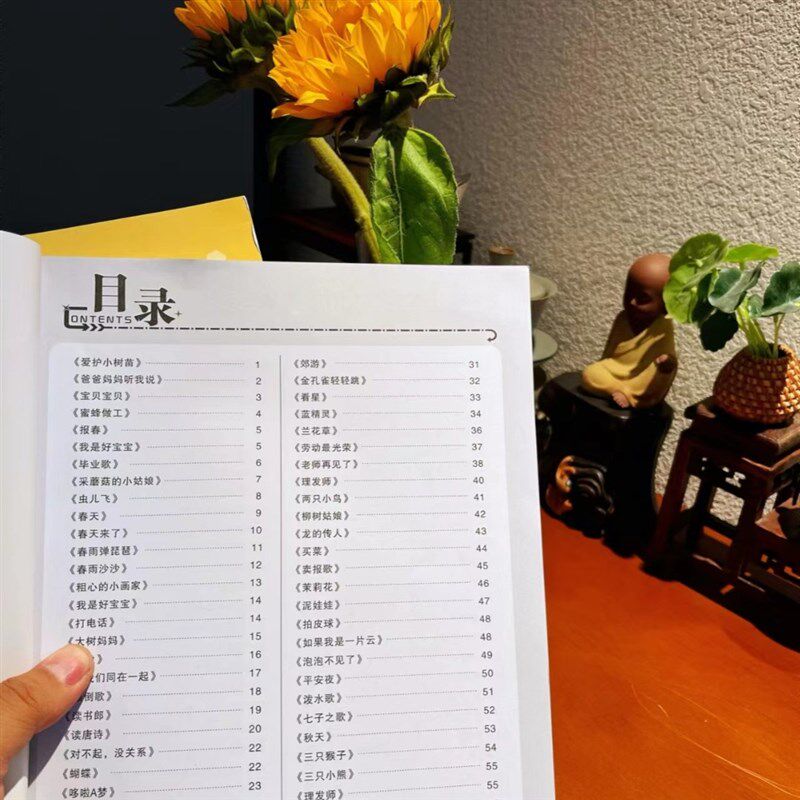 目录
CONTENTS
《爱护小树苗》 1
《爸爸妈妈听我说》 2
《宝贝宝贝》 3
《蜜蜂做工》 4
《报春》 5
《我是好宝宝》 5
《毕业歌》 6
《采蘑菇的小姑娘》 7
《虫儿飞》 8
《春天》 9
《春天来了》 10
《春雨弹琵琶》 11
《春雨沙沙》 12
《粗心的小画家》 13
《我是好宝宝》 14
《打电话》 14
《大树妈妈》 15
》 16
们同在一起》 17
倒歌》 18
《读书郎》 19
《读唐诗》 20
《对不起，没关系》 22
《蝴蝶》 22
《哆啦A梦》 23
《郊游》 31
《金孔雀轻轻跳》 32
《看星》 33
《蓝精灵》 34
《兰花草》 36
《劳动最光荣》 37
《老师再见了》 38
《理发师》 40
《两只小鸟》 41
《柳树姑娘》 42
《龙的传人》 43
《买菜》 44
《卖报歌》 45
《茉莉花》 46
《泥娃娃》 47
《拍皮球》 48
《如果我是一片云》 48
《泡泡不见了》 49
《平安夜》 50
《泼水歌》 51
《七子之歌》 52
《秋天》 53
《三只猴子》 54
《三只小熊》 55
《理发师》 55